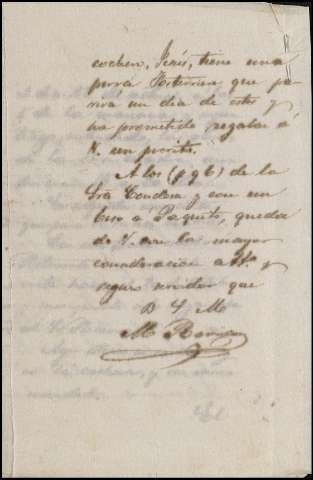 cochero, Jesús, tiene una
perra Terranova que pa-
rirá un día de estos y
ha prometido regalar á
V. un perrito.
A los (p q b) de la
Sra Condesa y con un
beso á Paquito, queda
de V. con la mayor
consideración a. Ho y
seguro servidor que
B S M
M R